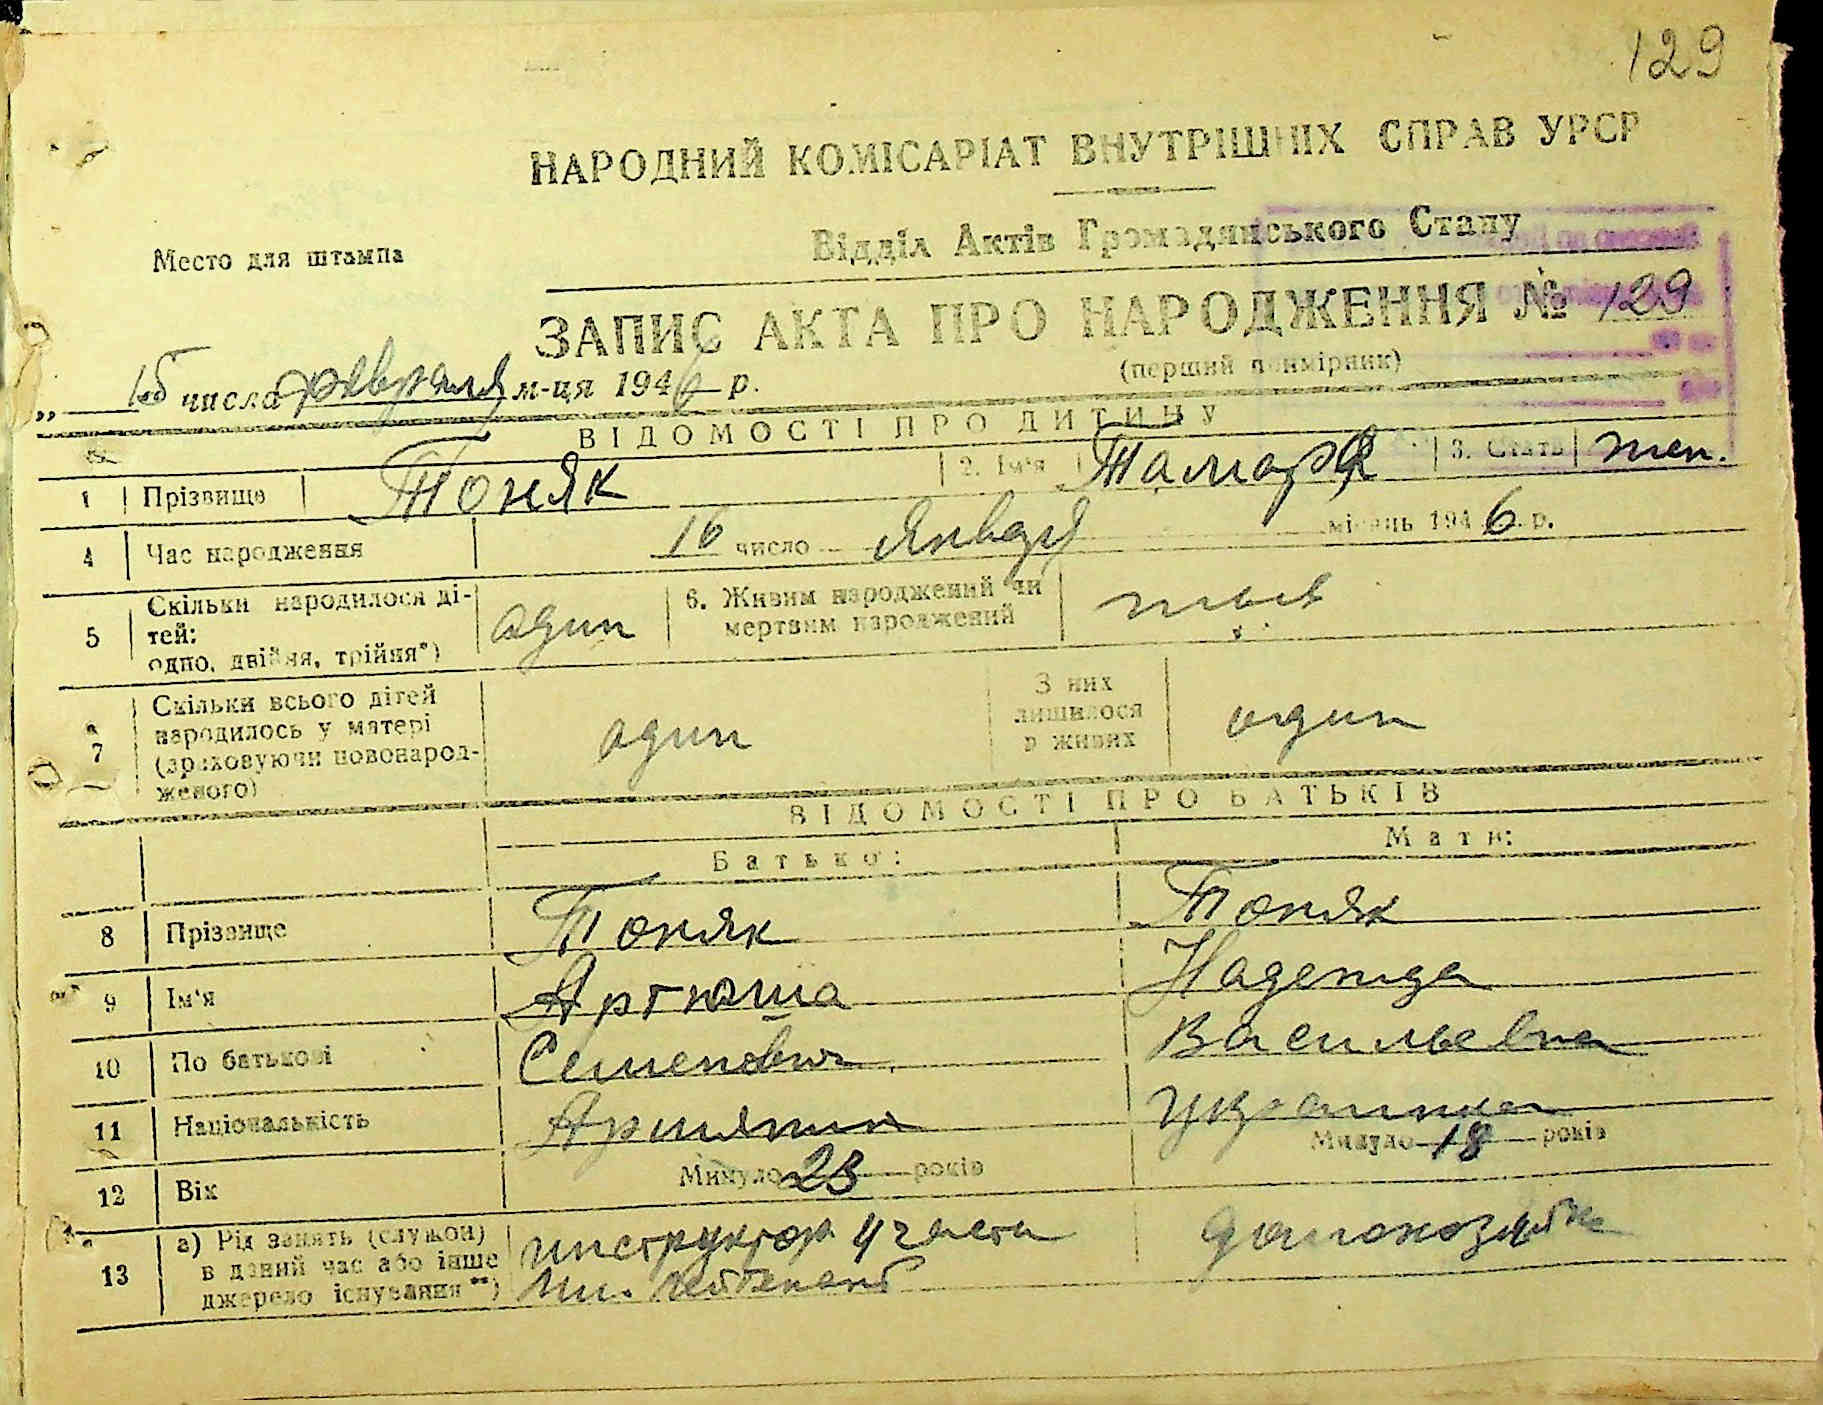 129
НАРОДНИЙ КОМІСАРІАТ ВНУТРІШНІХ СПРАВ УРСР
Место для штампа
Відділ Актів Громадянського Стану
ЗАПИС АКТА ПРО НАРОДЖЕННЯ № 129
(перший примірник)
„ 15 числа февраля м-ця 1946 р.
ВІДОМОСТІ ПРО ДИТИНУ
1 Прізвище Тоняк 2. Ім'я Тамара 3. Стать жен.
4 Час народження 16 число Января місяць 1946 р.
5 Скільки народилося ді-
тей:
одно, двійня, трійня*) один 6. Живим народжений чи
мертвим народжений
7 Скільки всього дітей
народилось у матері
(враховуючи новонарод-
женого) один З них
лишилося
в живих один
ВІДОМОСТІ ПРО БАТЬКІВ
Батько: Мати:
8 Прізвище Тоняк Тоняк
9 Ім'я Артюша Надежда
10 По батькові Семенович Васильевна
11 Національність Армянин Украинка
12 Вік Минуло 23 років Минуло 18 років
13 а) Рід занять (служби)
в даний час або інше
джерело існування **) инструктор части
Мл. лейтенант домохозяйка